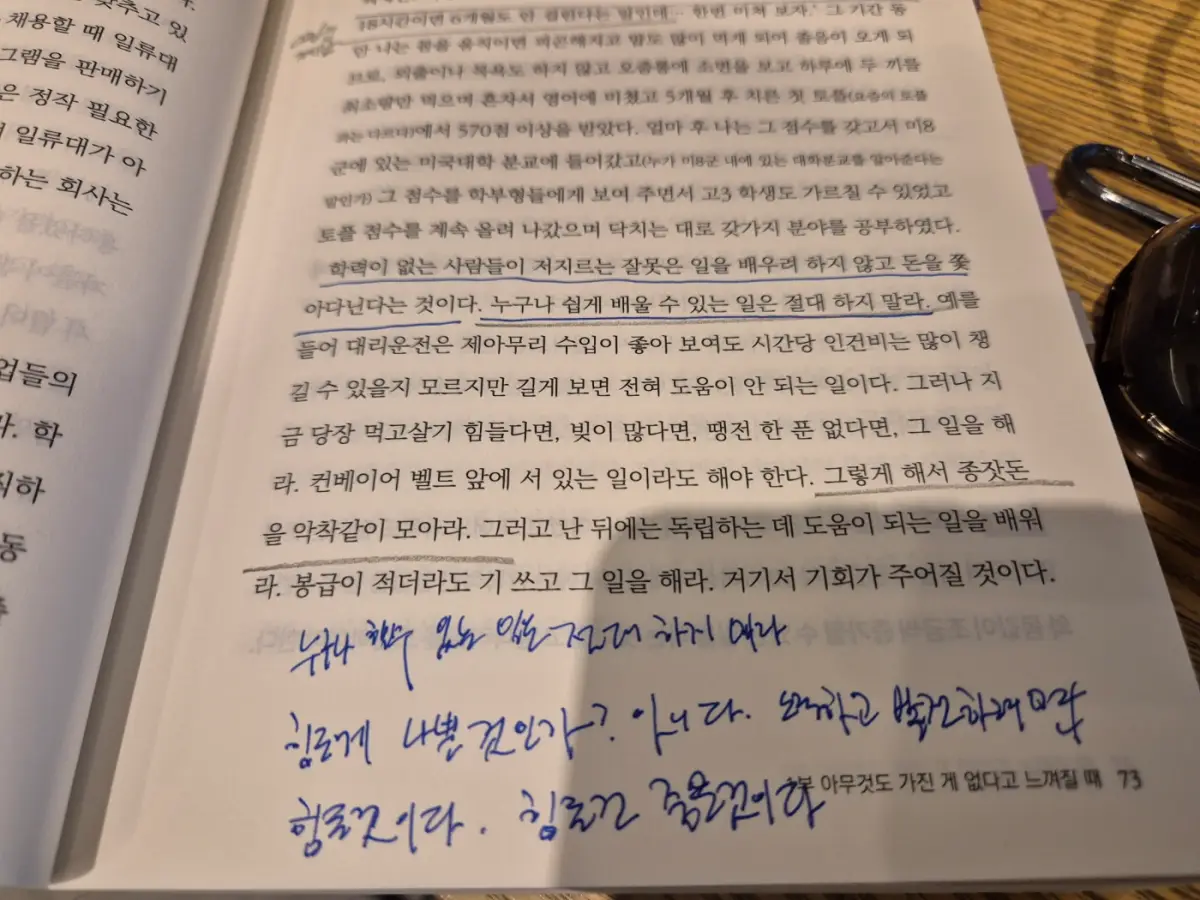 맞추고 있
채용할 때 일류대
그램을 판매하기
은 정작 필요한
일류대가 아
하는 회사는
업들의
라. 학
동
18시간이면 6개월도 안 걸린다는 말인데… 한번 미쳐 보자.' 그 기간 동
안 나는 몸을 움직이면 피곤해지고 밥도 많이 먹게 되어 졸음이 오게 되
므로, 외출이나 목욕도 하지 않고 오줌통에 소변을 보고 하루에 두 끼를
최소량만 먹으며 혼자서 영어에 미쳤고 5개월 후 치른 첫 토플(요즘의 토플
과는 다르다)에서 570점 이상을 받았다. 얼마 후 나는 그 점수를 갖고서 미8
군에 있는 미국대학 분교에 들어갔고(누가 미8군 내에 있는 대학분교를 알아준다는
말인가) 그 점수를 학부형들에게 보여 주면서 고3 학생도 가르칠 수 있었고
토플 점수를 계속 올려 나갔으며 닥치는 대로 갖가지 분야를 공부하였다.
학력이 없는 사람들이 저지르는 잘못은 일을 배우려 하지 않고 돈을 쫓
아다닌다는 것이다. 누구나 쉽게 배울 수 있는 일은 절대 하지 말라. 예를
들어 대리운전은 제아무리 수입이 좋아 보여도 시간당 인건비는 많이 챙
길 수 있을지 모르지만 길게 보면 전혀 도움이 안 되는 일이다. 그러나 지
금 당장 먹고살기 힘들다면, 빚이 많다면, 땡전 한 푼 없다면, 그 일을 해
라. 컨베이어 벨트 앞에 서 있는 일이라도 해야 한다. 그렇게 해서 종잣돈
을 악착같이 모아라. 그러고 난 뒤에는 독립하는 데 도움이 되는 일을 배워
라. 봉급이 적더라도 기 쓰고 그 일을 해라. 거기서 기회가 주어질 것이다.
누구나 할수 있는 일은 절대 하지 마라
힘든게 나쁜것인가? 아니다.
힘든것이다. 힘든건 좋은것이다
아무것도 가진 게 없다고 느껴질 때 73